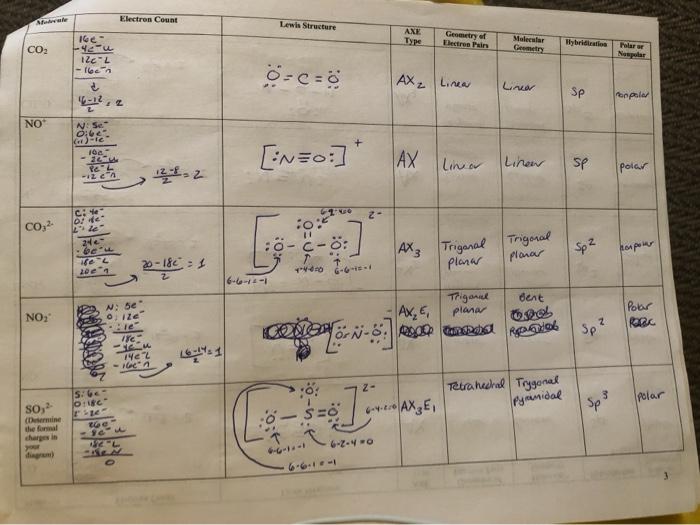 Molecule Electron Count Lewis Structure AXE Type Geometry of Electron Pairs Molecular Geometry Hybridization Polar or Nonpolar
CO₂
16e⁻
-4e⁻u
12e⁻L
-16e⁻n
16-12 = 2
2
:Ö=C=Ö:
AX₂ Linear Linear Sp nonpolar
NO⁺
N: 5e⁻
O: 6e⁻
(+1)-1e⁻
10e⁻
-2e⁻u
8e⁻L
-12e⁻n
12-8 = 2
2
[:N≡O:]⁺
AX Linear Linear SP polar
CO₃²⁻
C: 4e⁻
24e⁻
-6e⁻u
18e⁻L
20e⁻n
20-18e⁻ = 1
2
6-2-4=0
2-
:O:
:Ö-C-Ö:
4-4-0=0
6-6-1=-1
6-6-1=-1
AX₃ Trigonal planar Trigonal planar Sp² nonpolar
NO₂⁻
N: 5e⁻
O: 12e⁻
-: 1e⁻
18e⁻
-4e⁻u
14e⁻L
-16e⁻n
16-14 = 1
2
[Ö=N-Ö:]⁻
AX₂E₁ Trigonal planar Bent Sp² Polar
SO₃²⁻
(Determine the formal charges in your diagram)
S: 6e⁻
O: 18e⁻
2⁻-2e⁻
26e⁻
-8e⁻u
18e⁻L
-18e N
0
2-
:Ö:
:Ö-S=Ö
6-6-1=-1
6-2-4=0
6-6-1=-1
AX₃E₁ Tetrahedral Trygonal pyramidal Sp³ polar
3